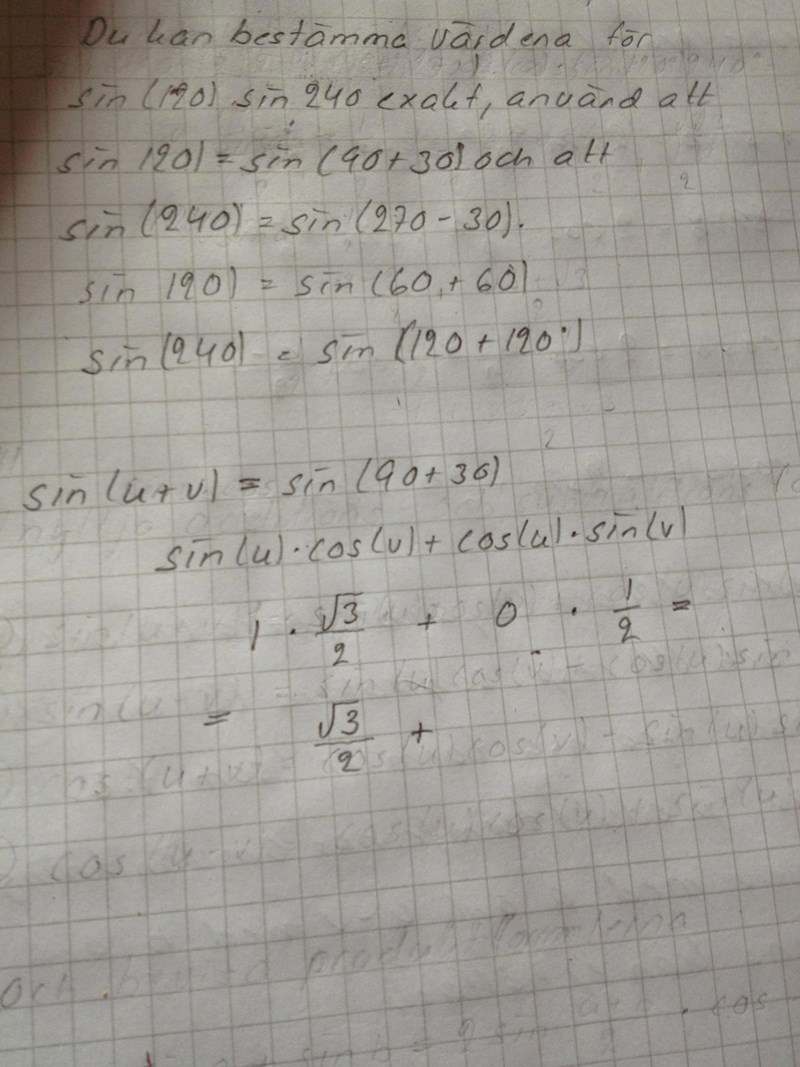 Du kan bestämma värdena för
sin(120) sin 240 exakt, använd att
sin 120) = sin (90+30) och att
sin(240) = sin(270-30).
sin 120) = sin(60+60)
sin(240) = sin(120+120°)
sin(u+v) = sin(90+30)
sin(u)·cos(v)+cos(u)·sin(v)
1 · √3/2 + 0 · 1/2 =
= √3/2 +